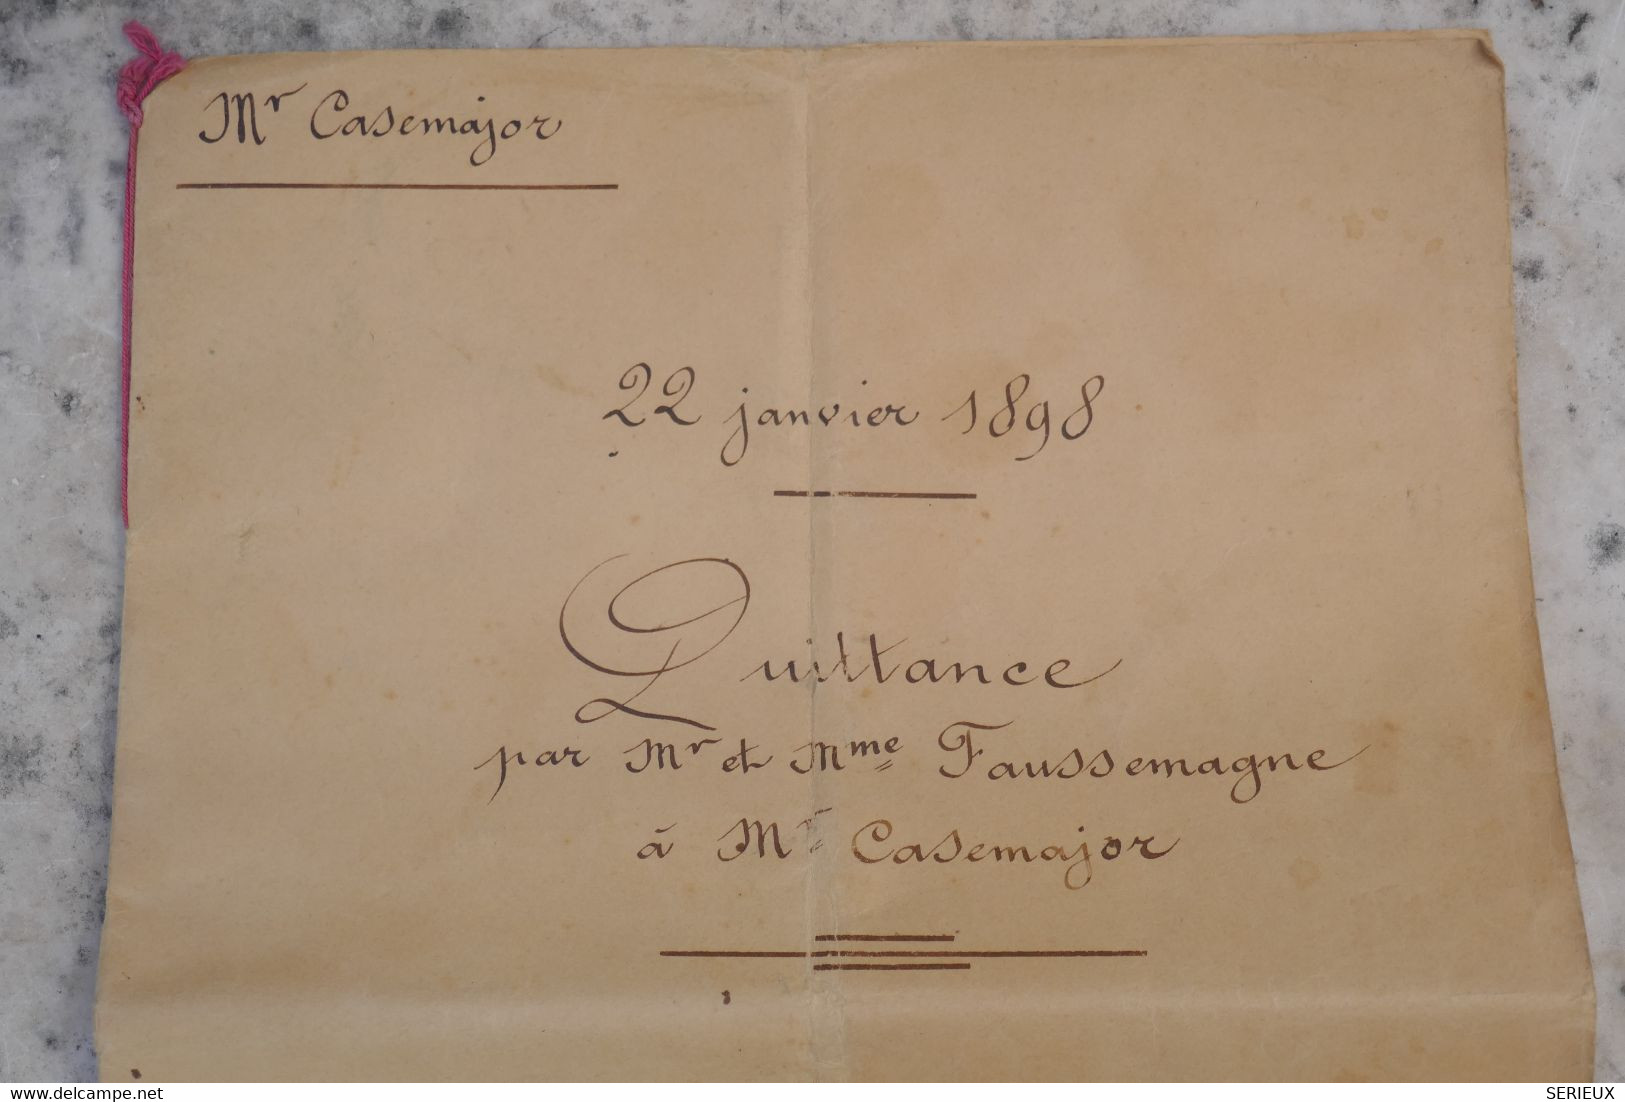 Mr Casemajor
22 janvier 1898
Quittance
par Mr et Mme Faussemagne
à Mr Casemajor
www.delcampe.net
SERIEUX